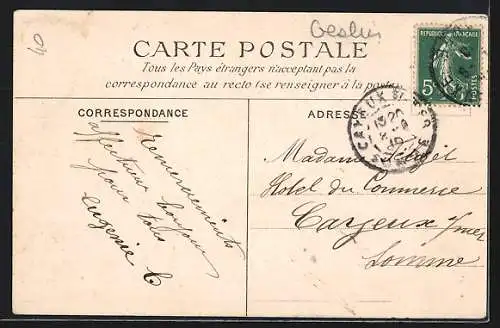 40
CARTE POSTALE
Tous les Pays étrangers n'acceptant pas la
correspondance au recto (se renseigner à la poste)
REPUBLIQUE FRANÇAISE
5c
POSTES
CORRESPONDANCE
ADRESSE
CAYEUX S/ MER
SOMME
Remerciements
affectueux bonjour
pour tous
Eugénie C
Madame
Hotel du Commerce
Cayeux s/mer
Somme